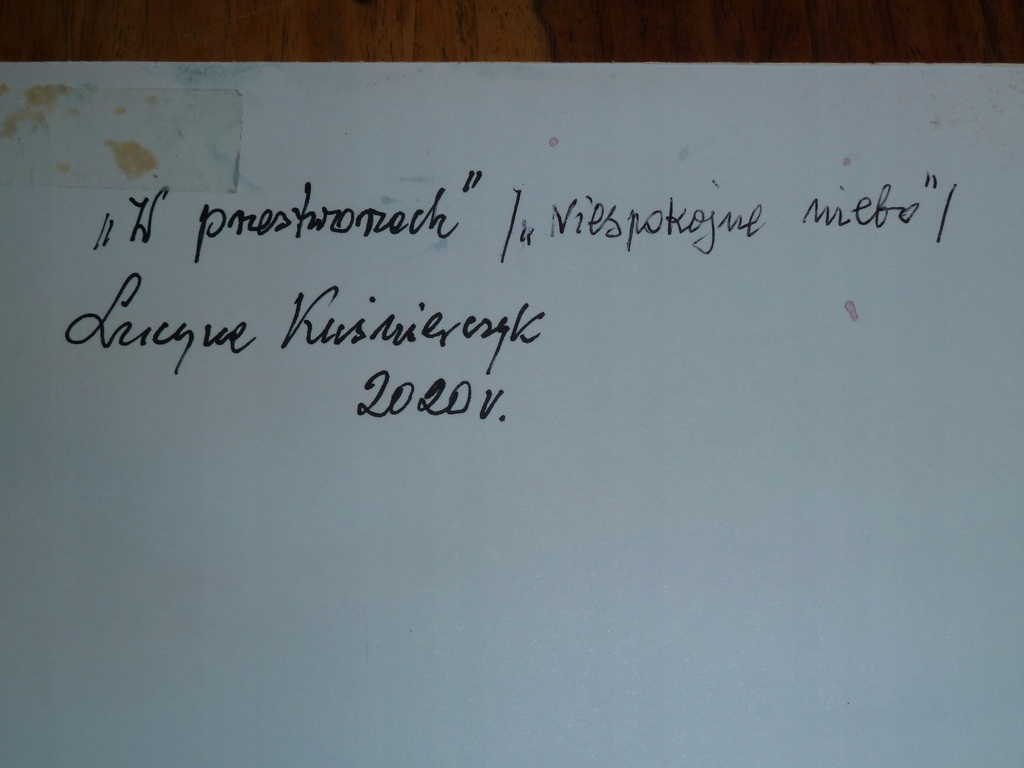 „W przestworzach” /„Niespokojne niebo”/
Lucyna Kuśmierczyk
2020 r.